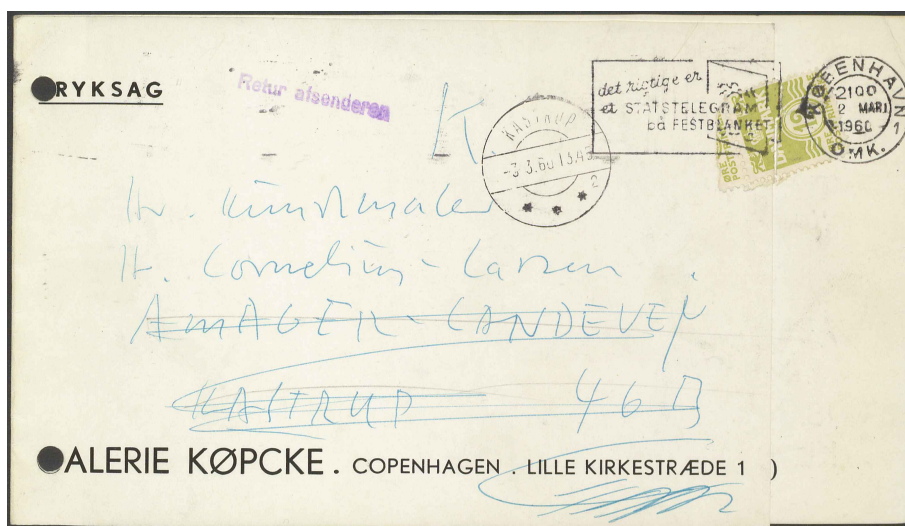 RYKSAG
Retur afsenderen
det rigtige er
et STATSTELEGRAM
på FESTBLANKET
KØBENHAVN
2100
2 MAR
1960
OMK.
1
KASTRUP
-3.3.60 13.45
2
K.
Hr. Kunstmaler
H. Cornelius-Larsen.
AMAGER-LANDEVEJ
KASTRUP 46B
ALERIE KØPCKE. COPENHAGEN. LILLE KIRKESTRÆDE 1 )